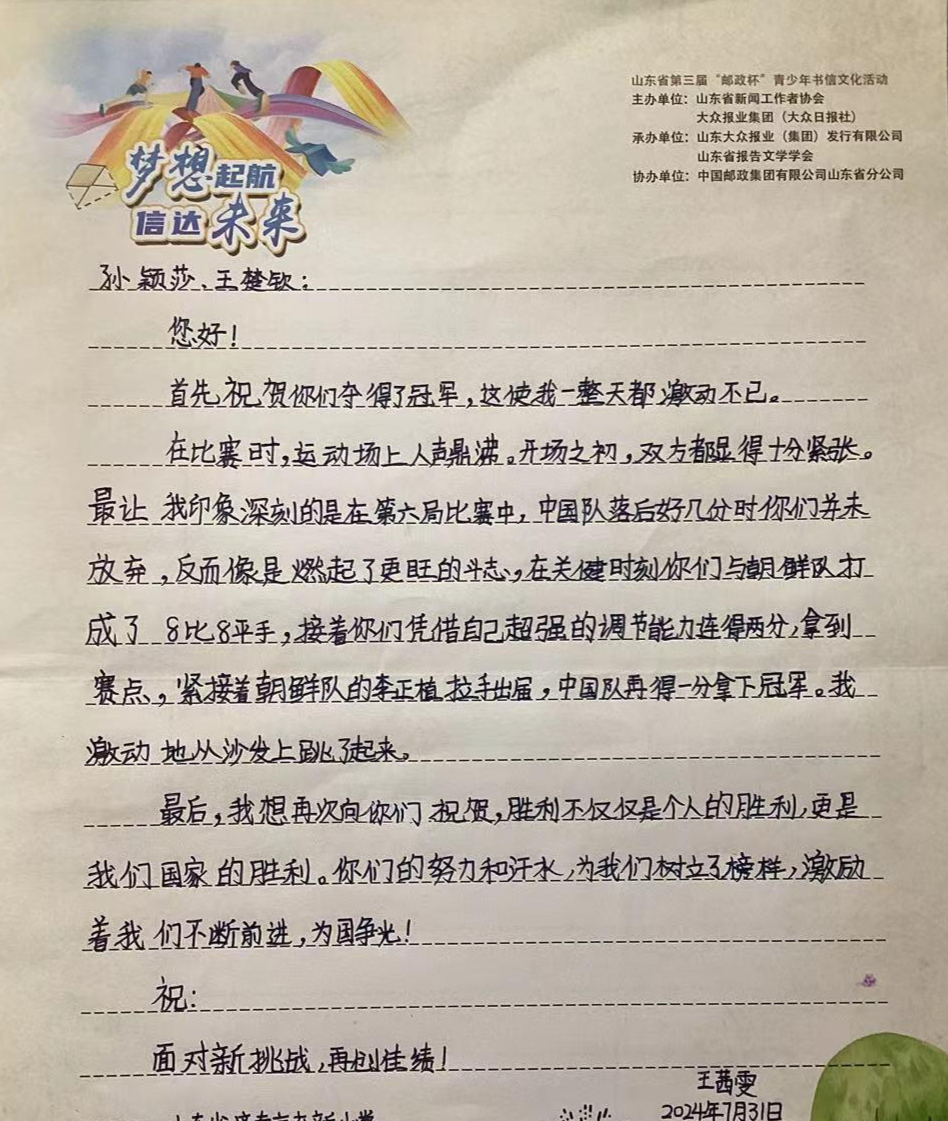 梦想起航
信达未来
山东省第三届“邮政杯”青少年书信文化活动
主办单位：山东省新闻工作者协会
大众报业集团（大众日报社）
承办单位：山东大众报业（集团）发行有限公司
山东省报告文学学会
协办单位：中国邮政集团有限公司山东省分公司
孙颖莎、王楚钦：
您好！
首先祝贺你们夺得了冠军，这使我一整天都激动不已。
在比赛时，运动场上人声鼎沸。开场之初，双方都显得十分紧张。
最让我印象深刻的是在第六局比赛中，中国队落后好几分时你们并未
放弃，反而像是燃起了更旺的斗志，在关健时刻你们与朝鲜队打
成了8比8平手，接着你们凭借自己超强的调节能力连得两分，拿到
赛点，紧接着朝鲜队的李正植拉手出届，中国队再得一分拿下冠军。我
激动地从沙发上跳了起来。
最后，我想再次向你们祝贺，胜利不仅仅是个人的胜利，更是
我们国家的胜利。你们的努力和汗水，为我们树立了榜样，激励
着我们不断前进，为国争光！
祝：
面对新挑战，再创佳绩！
王茜雯
2024年7月31日